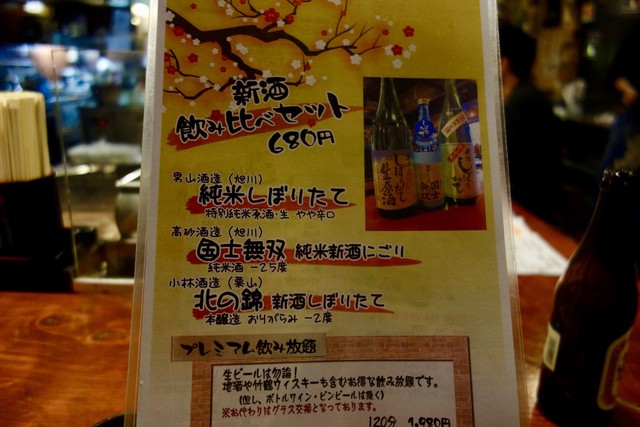 新酒
飲み比べセット
680円
男山酒造（旭川）
純米しぼりたて
特別純米原酒・生 やや辛口
高砂酒造（旭川）
国士無双 純米新酒にごり
純米酒 －25度
小林酒造（栗山）
北の錦 新酒しぼりたて
本醸造 おりがらみ －2度
プレミアム飲み放題
生ビールは勿論！
地酒や竹鶴ウイスキーも含むお得な飲み放題です。
（但し、ボトルワイン・ビンビールは除く）
※お代わりはグラス交換となっております。
120分 1,980円
しぼりたて
生原酒